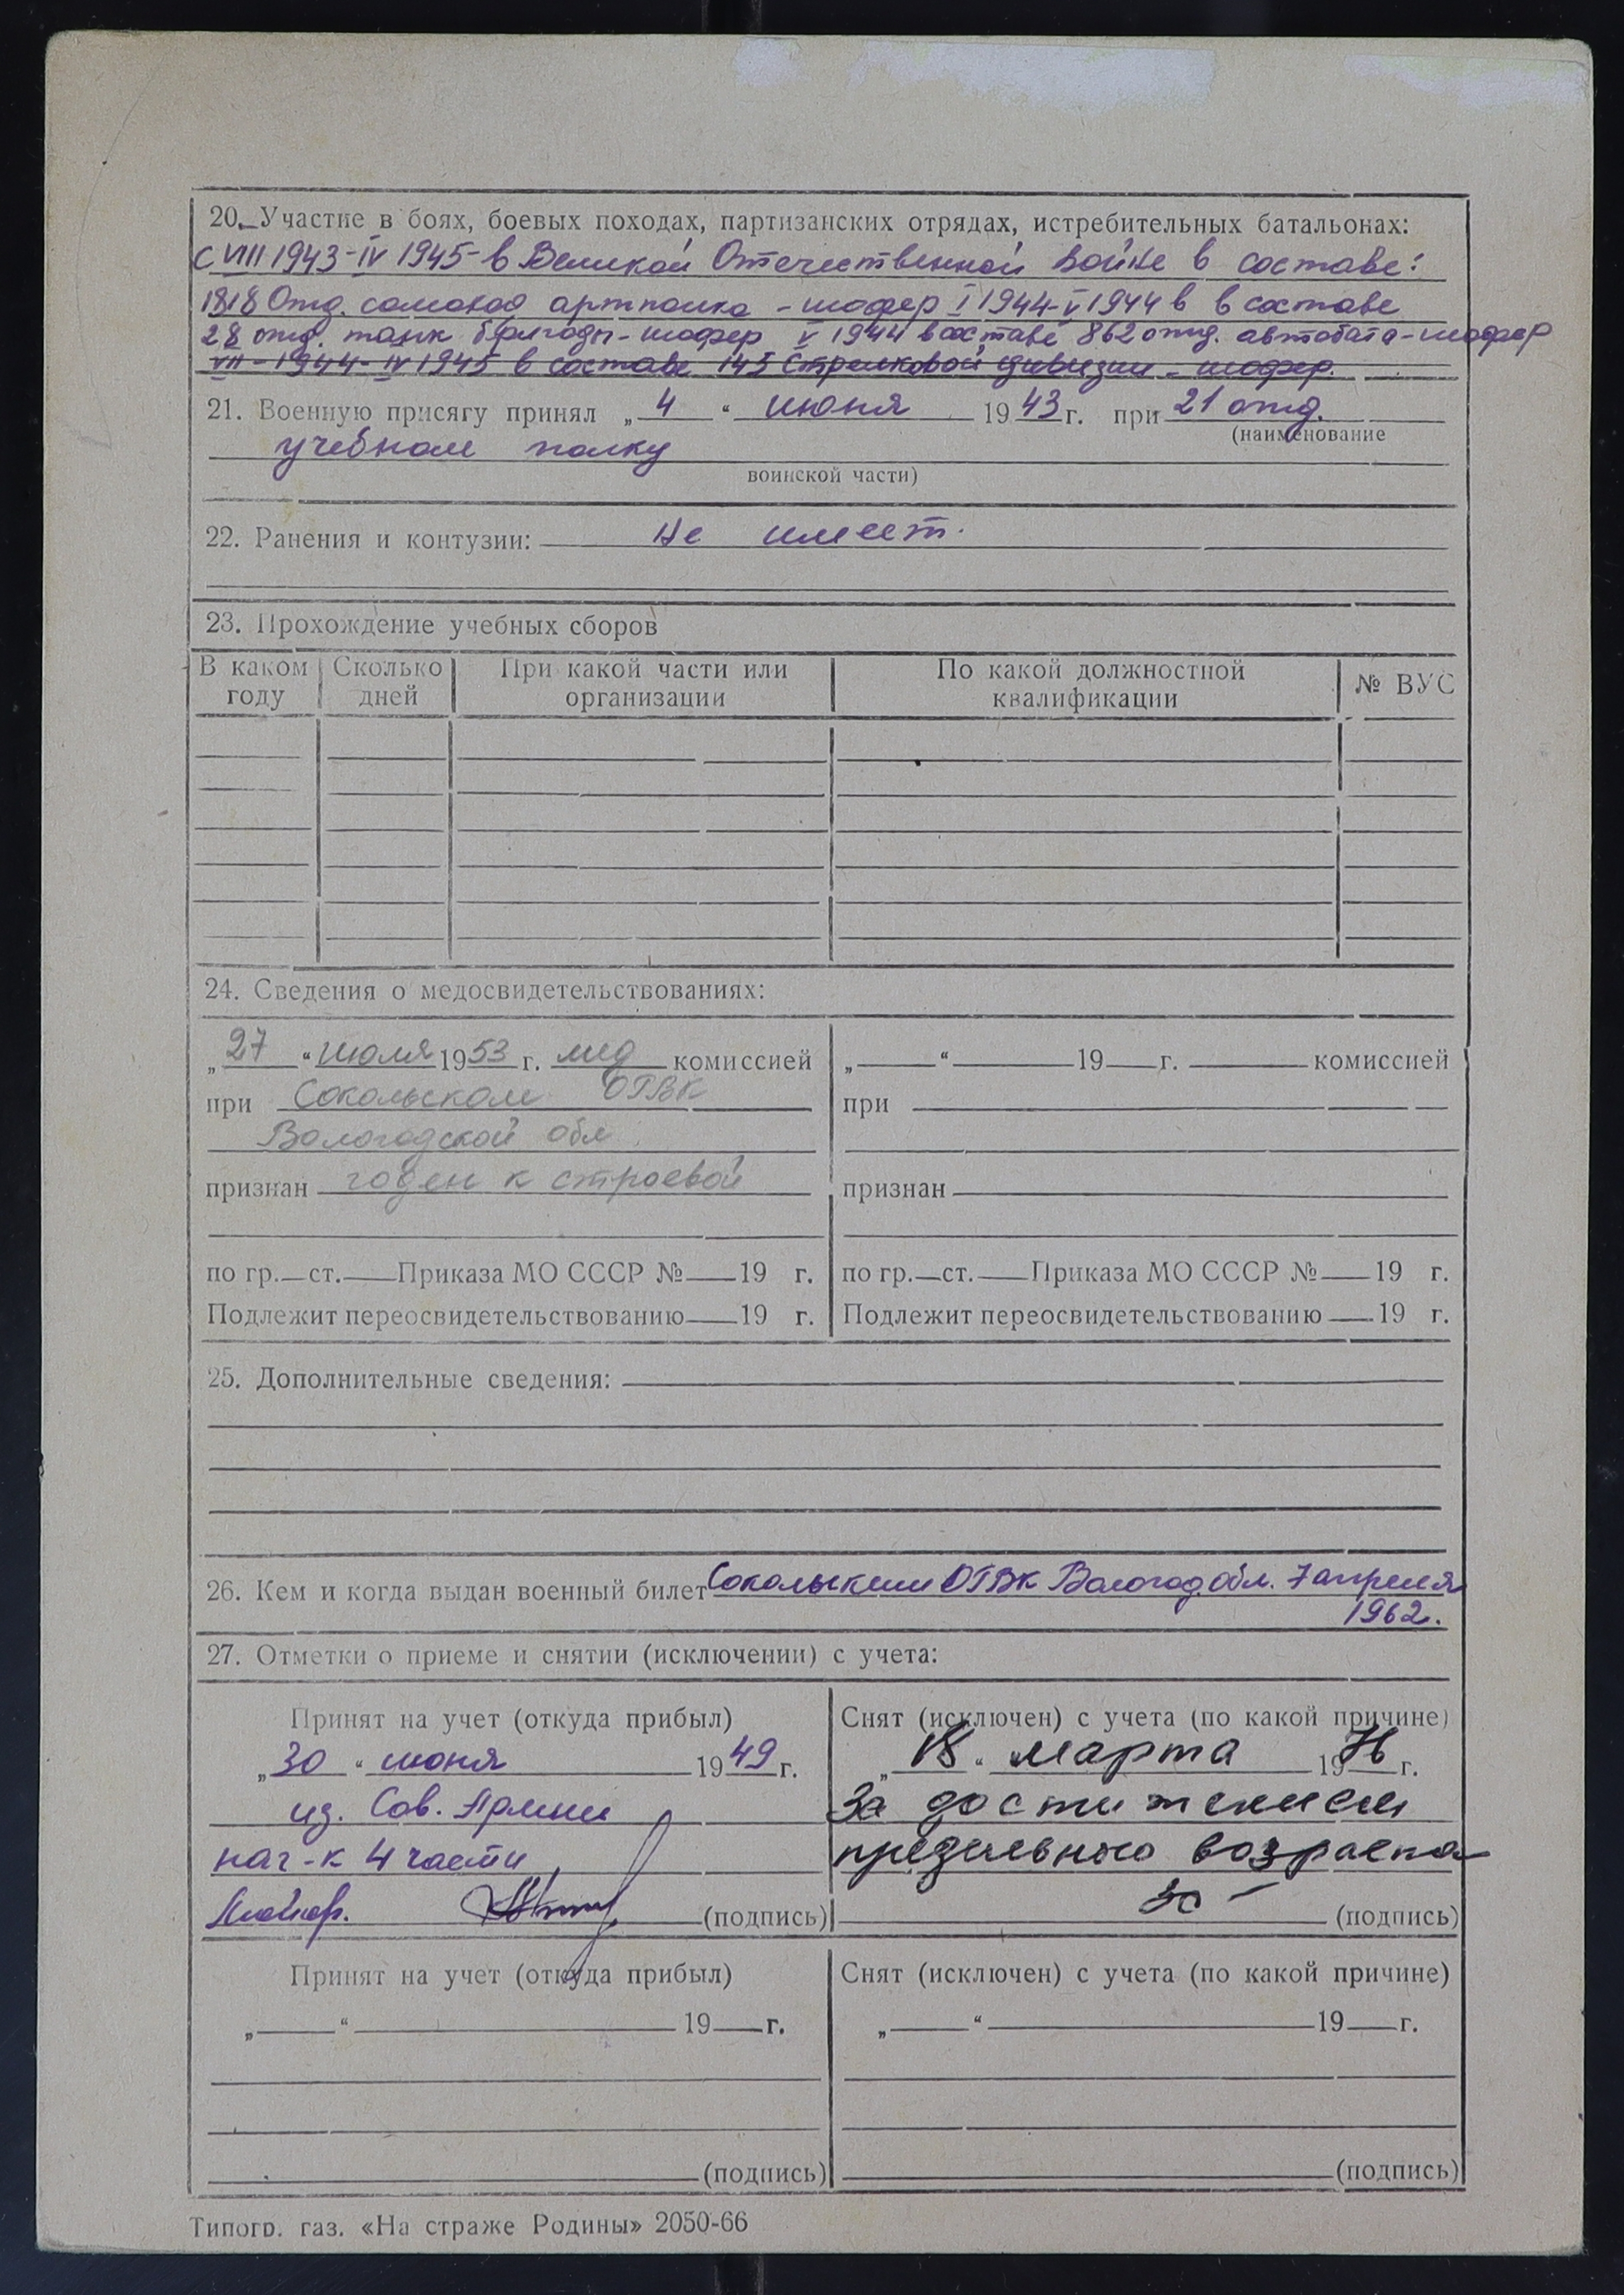 20. Участие в боях, боевых походах, партизанских отрядах, истребительных батальонах:
с VIII 1943-IV 1945- в Великой Отечественной войне в составе:
1818 Отд. самоход артполка - шофер I 1944-V 1944 в в составе
28 отд. танк. бригады - шофер V 1944 в составе 862 отд. автобата - шофер
VII - 1944 - IV 1945 в составе 145 Стрелковой дивизии - шофер.
21. Военную присягу принял „ 4 “ июня 1943 г. при 21 отд.
(наименование
учебном полку
воинской части)
22. Ранения и контузии: Не имеет.
23. Прохождение учебных сборов
В каком году Сколько дней При какой части или организации По какой должностной квалификации № ВУС
24. Сведения о медосвидетельствованиях:
„ 27 “ июля 1953 г. мед комиссией
при Сокольском ОГВК
Вологодской обл.
признан годен к строевой
по гр. ст. Приказа МО СССР № 19 г.
Подлежит переосвидетельствованию 19 г.
„ “ 19 г. комиссией
при
признан
по гр. ст. Приказа МО СССР № 19 г.
Подлежит переосвидетельствованию 19 г.
25. Дополнительные сведения:
26. Кем и когда выдан военный билет Сокольским ОГВК Вологод. обл. 7 апреля
1962.
27. Отметки о приеме и снятии (исключении) с учета:
Принят на учет (откуда прибыл)
„ 30 “ июня 1949 г.
из. Сов. Армии
нач-к 4 части
Майор. (подпись)
Снят (исключен) с учета (по какой причине)
„ 18 “ марта 1976 г.
За достижением
предельного возраста
(подпись)
Принят на учет (откуда прибыл)
„ “ 19 г.
(подпись)
Снят (исключен) с учета (по какой причине)
„ “ 19 г.
(подпись)
Типогр. газ. «На страже Родины» 2050-66